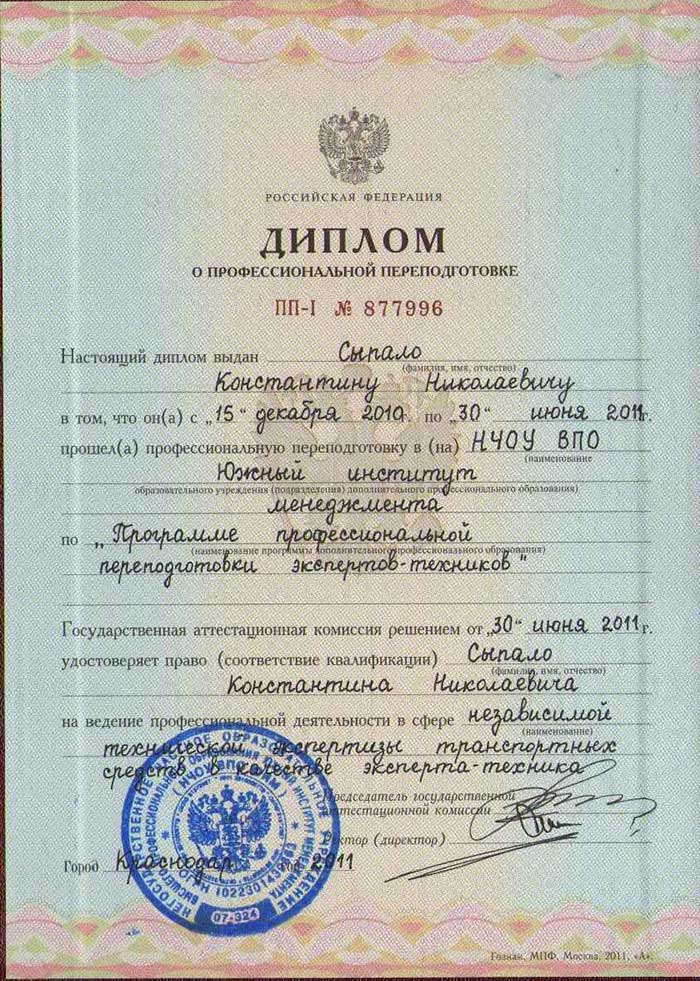 РОССИЙСКАЯ ФЕДЕРАЦИЯ
ДИПЛОМ
О ПРОФЕССИОНАЛЬНОЙ ПЕРЕПОДГОТОВКЕ
ПП-I № 877996
Настоящий диплом выдан Сыпало
(фамилия, имя, отчество)
Константину Николаевичу
в том, что он(а) с „15" декабря 2010г. по „30" июня 2011г.
прошел(а) профессиональную переподготовку в (на) НЧОУ ВПО
(наименование
Южный институт
образовательного учреждения (подразделения) дополнительного профессионального образования)
менеджмента
по „Программе профессиональной
(наименование программы дополнительного профессионального образования)
переподготовки экспертов-техников"
Государственная аттестационная комиссия решением от „30" июня 2011г.
удостоверяет право (соответствие квалификации) Сыпало
(фамилия, имя, отчество)
Константина Николаевича
на ведение профессиональной деятельности в сфере независимой
(наименование)
технической экспертизы транспортных
средств в качестве эксперта-техника
Председатель государственной
аттестационной комиссии
Ректор (директор)
Город Краснодар год 2011
НЕГОСУДАРСТВЕННОЕ ОБРАЗОВАТЕЛЬНОЕ УЧРЕЖДЕНИЕ
07-324
Гознак, МПФ, Москва, 2011, «А».